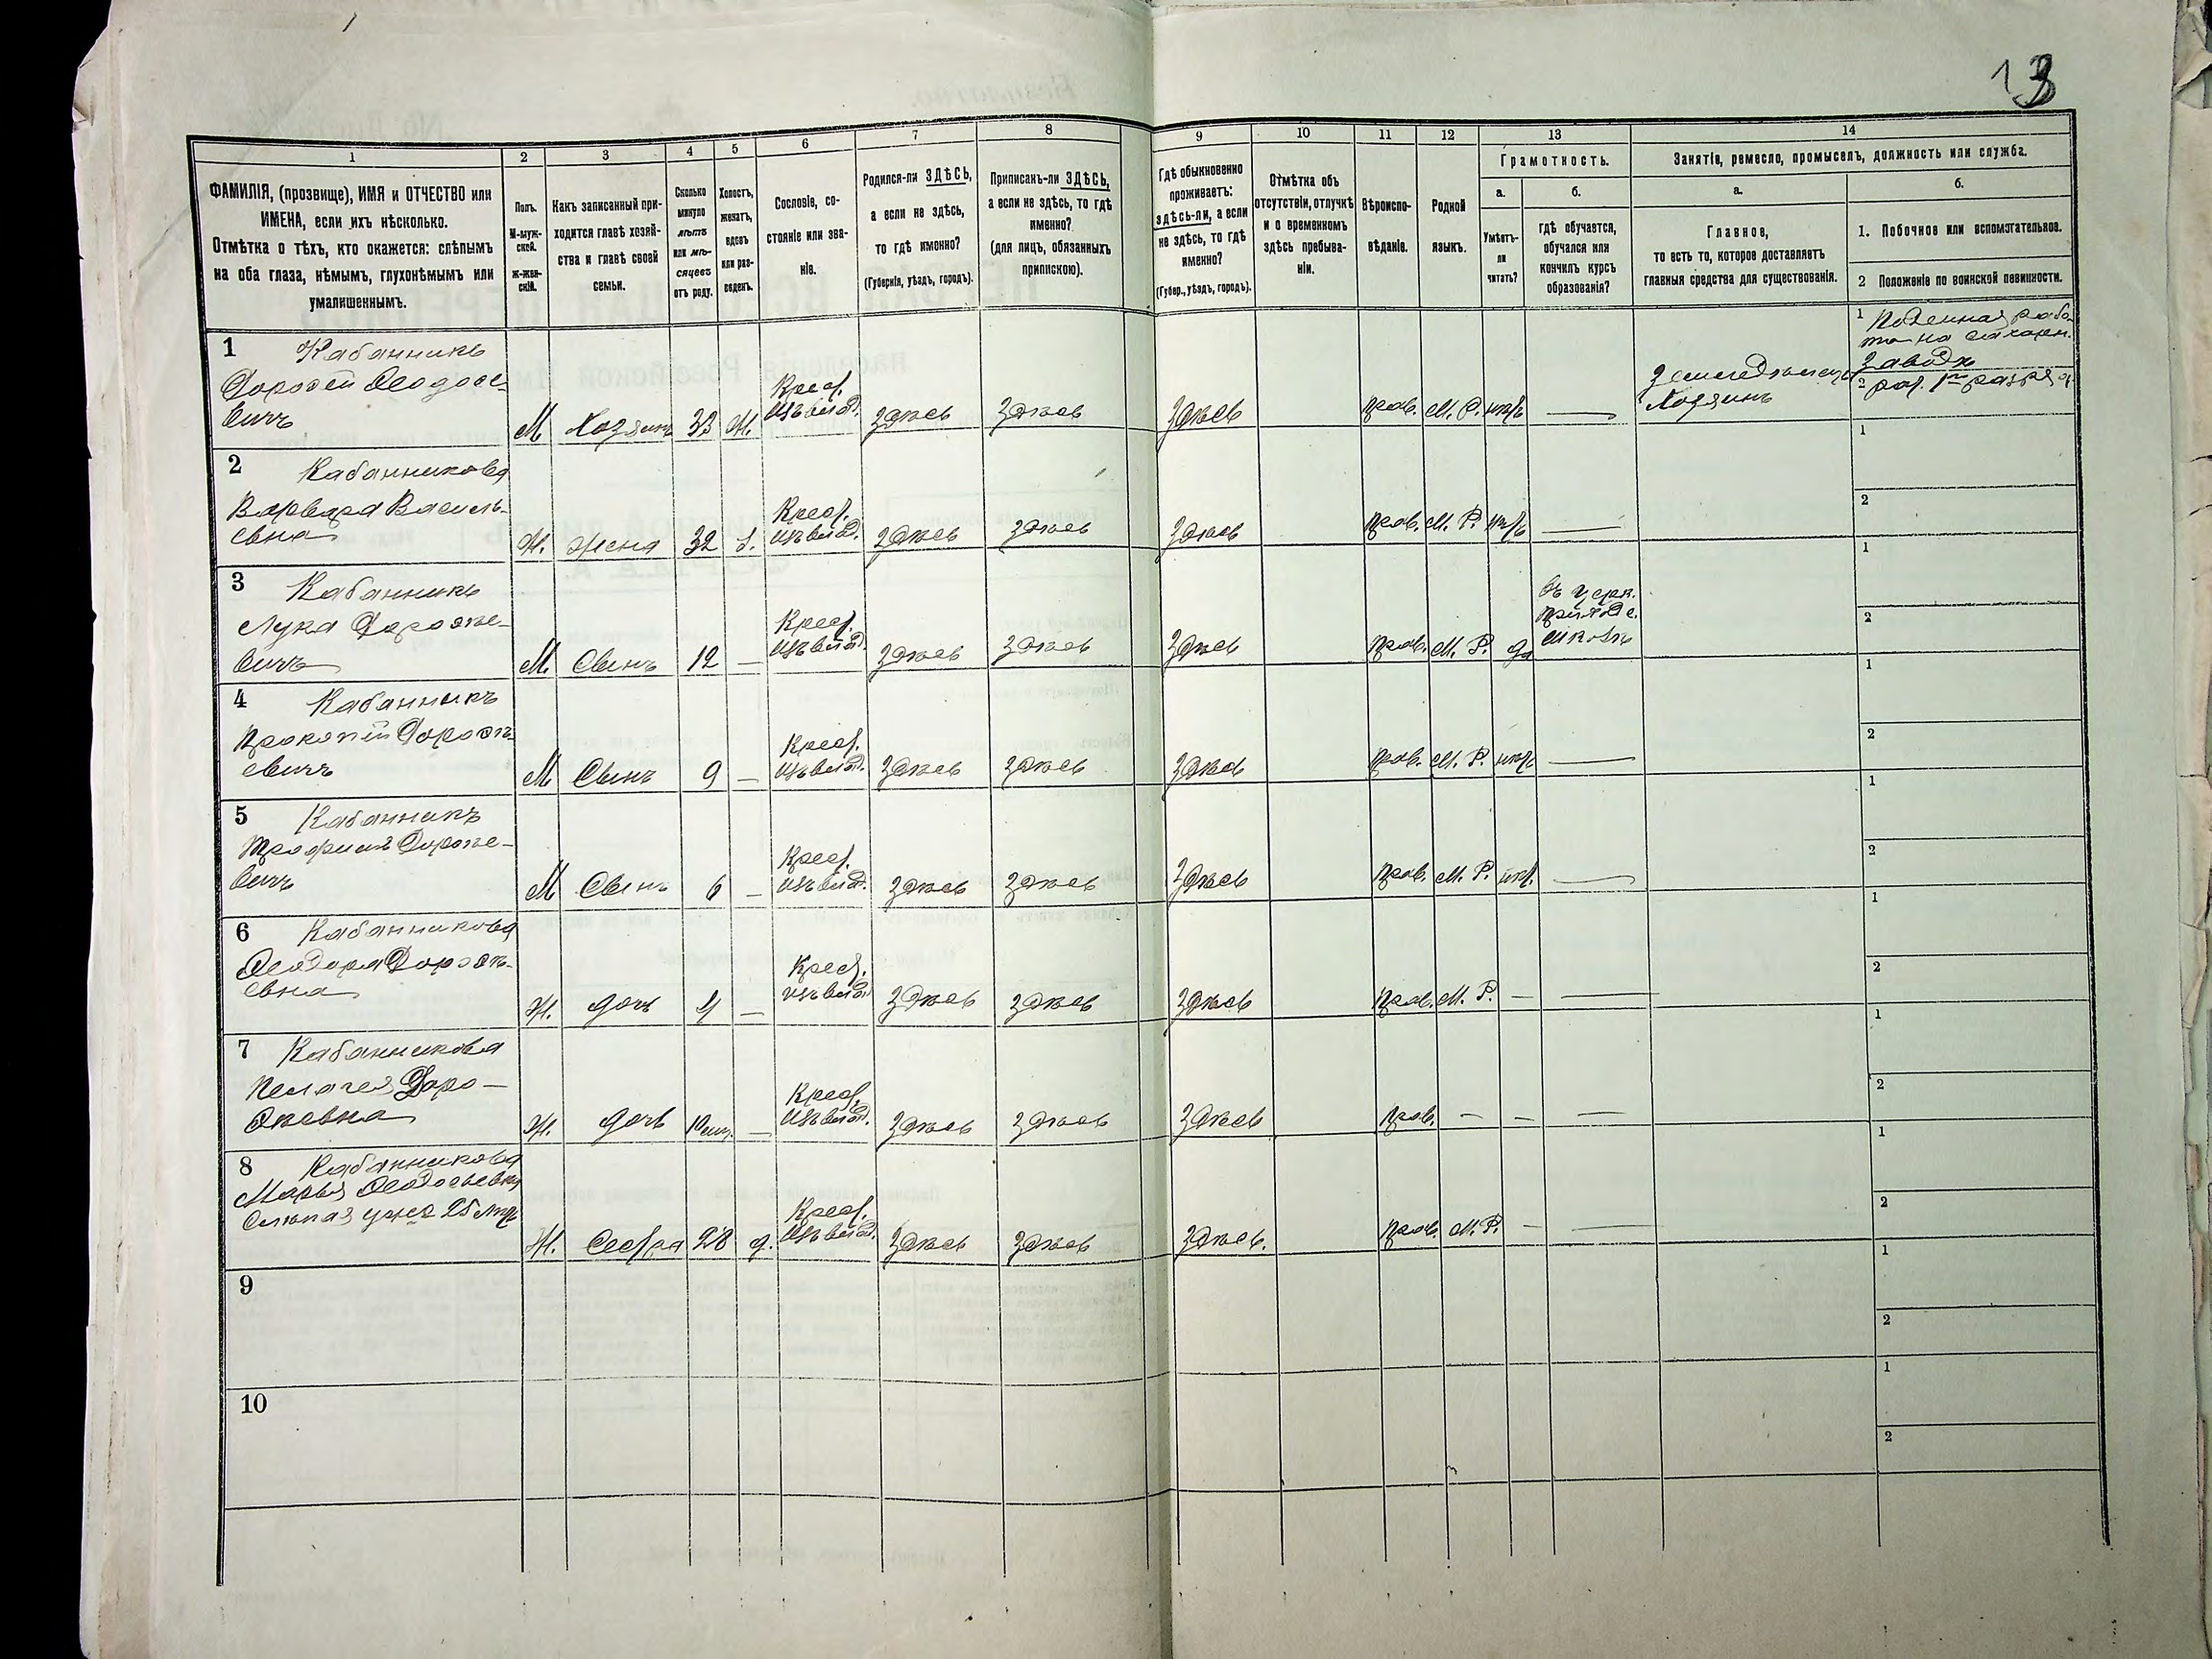 13
1
2
3
4
5
6
7
8
9
10
11
12
13
14
ФАМИЛІЯ, (прозвище), ИМЯ и ОТЧЕСТВО или
ИМЕНА, если ихъ нѣсколько.
Отмѣтка о тѣхъ, кто окажется: слѣпымъ
на оба глаза, нѣмымъ, глухонѣмымъ или
умалишеннымъ.
Полъ.
М-муж-
ской.
Ж-жен-
скій.
Какъ записанный при-
ходится главѣ хозяй-
ства и главѣ своей
семьи.
Сколько
минуло
лѣтъ
или мѣ-
сяцевъ
отъ роду.
Холостъ,
женатъ,
вдовъ
или раз-
веденъ.
Сословіе, со-
стояніе или зва-
ніе.
Родился-ли ЗДѢСЬ,
а если не здѣсь,
то гдѣ именно?
(Губернія, уѣздъ, городъ).
Приписанъ-ли ЗДѢСЬ,
а если не здѣсь, то гдѣ
именно?
(для лицъ, обязанныхъ
припискою).
Гдѣ обыкновенно
проживаетъ:
здѣсь-ли, а если
не здѣсь, то гдѣ
именно?
(Губер., уѣздъ, городъ).
Отмѣтка объ
отсутствіи, отлучкѣ
и о временномъ
здѣсь пребыва-
ніи.
Вѣроиспо-
вѣданіе.
Родной
языкъ.
Грамотность.
а.
Умѣетъ-
ли
читать?
б.
гдѣ обучается,
обучался или
кончилъ курсъ
образованія?
Занятіе, ремесло, промыселъ, должность или служба.
а.
Главное,
то есть то, которое доставляетъ
главныя средства для существованія.
б.
1. Побочное или вспомогательное.
2 Положеніе по воинской повинности.
1 Кабанникъ
Дорофей Ѳеодосі-
евичъ
М Хозяинъ 33 Ж.
Крест.
изъ влад.
здѣсь здѣсь здѣсь прав. М. Р. нѣтъ —
Земледѣлецъ
Хозяинъ
1 Поденная рабо-
та на сахарн.
заводѣ
2
2 Кабанникова
Варвара Василь-
евна
Ж. жена 32 З.
Крест.
изъ влад.
здѣсь здѣсь здѣсь прав. М. Р. нѣтъ —
1
2
3 Кабанникъ
Лука Дорофе-
вичъ
М Сынъ 12 —
Крест.
изъ влад.
здѣсь здѣсь здѣсь прав. М. Р. да
въ церк.
приходс.
школѣ
1
2
4 Кабанникъ
Прокопій Дороѳѣ-
евичъ
М Сынъ 9 —
Крест.
изъ влад.
здѣсь здѣсь здѣсь прав. М. Р. нѣтъ —
1
2
5 Кабанникъ
Трофимъ Дорофе-
вичъ
М Сынъ 6 —
Крест.
изъ влад.
здѣсь здѣсь здѣсь прав. М. Р. нѣт. —
1
2
6 Кабанникова
Ѳеодора Дороѳѣ-
евна
Ж. дочь 4 —
Крест.
изъ влад.
здѣсь здѣсь здѣсь прав. М. Р. — —
1
2
7 Кабанникова
Пелагея Доро-
ѳѣевна
Ж. дочь 10 мц. —
Крест.
изъ влад.
здѣсь здѣсь здѣсь прав. — — —
1
2
8 Кабанникова
Марья Ѳеодосьевна
Слѣпая уже 25 лѣтъ
Ж. Сестра 28 д.
Крест.
изъ влад.
здѣсь здѣсь здѣсь. прав. М. Р. — —
1
2
9
1
2
10
1
2